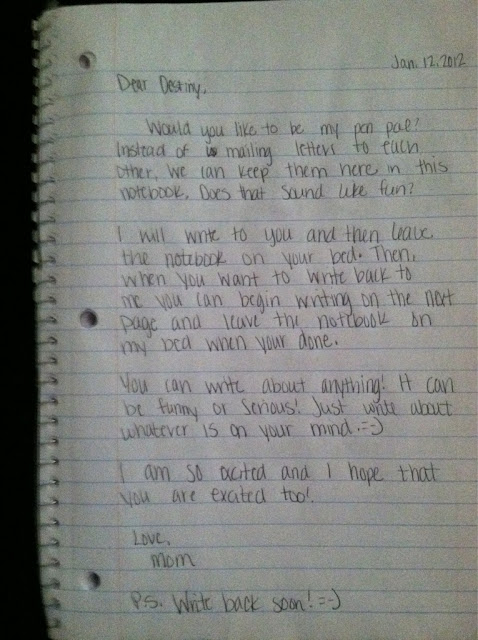 Jan. 12, 2012
Dear Destiny,
Would you like to be my pen pal?
Instead of mailing letters to each
other, we can keep them here in this
notebook. Does that sound like fun?
I will write to you and then leave
the notebook on your bed. Then,
when you want to write back to
me you can begin writing on the next
page and leave the notebook on
my bed when your done.
You can write about anything! It can
be funny or serious! Just write about
whatever is on your mind. =-)
I am so excited and I hope that
you are excited too!
Love,
mom
P.S. Write back soon! =-)